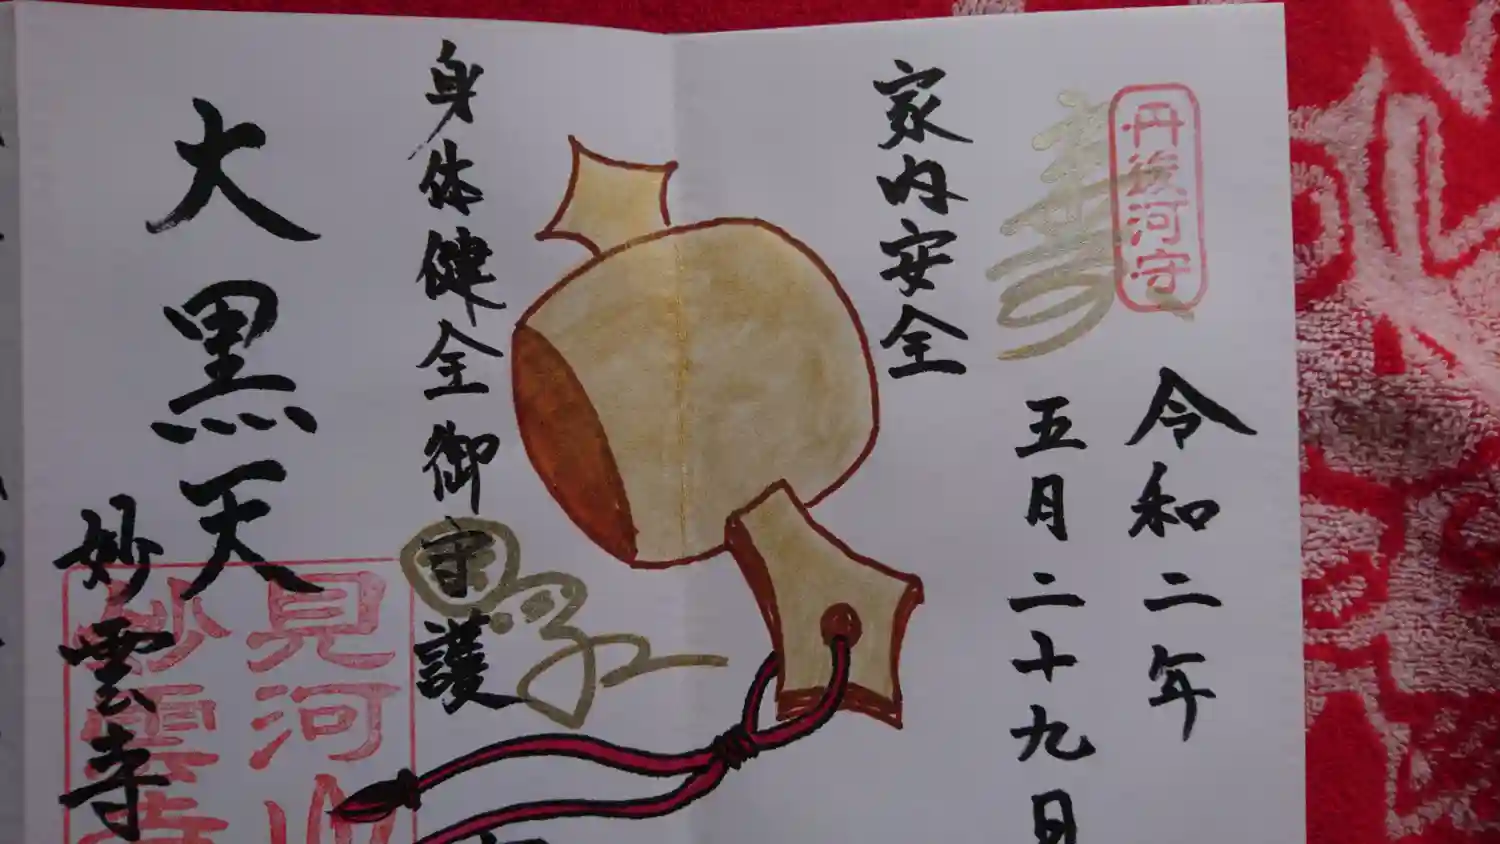 丹後河守
令和二年
五月二十九日
寿
家内安全
身体健全御守護
大黒天
妙雲寺
見河山
妙雲寺